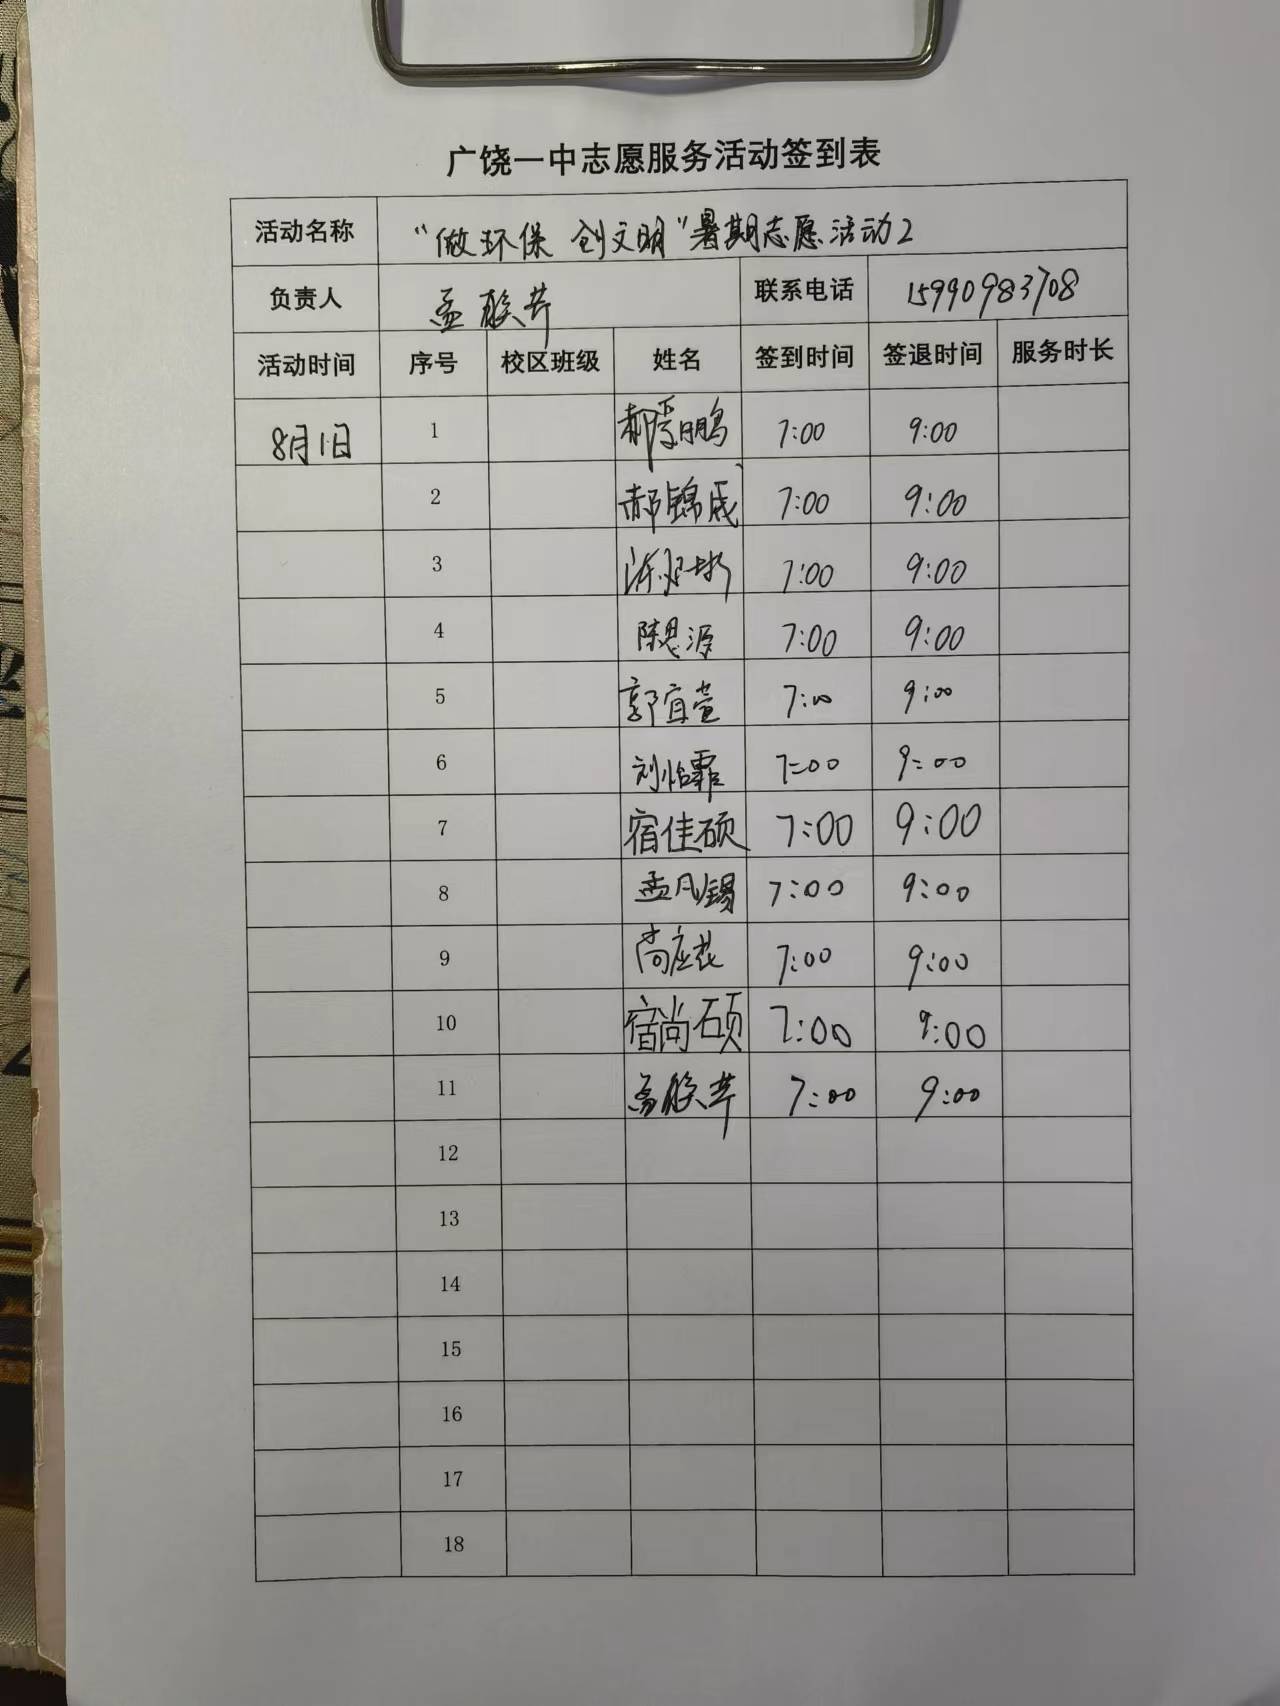 广饶一中志愿服务活动签到表
活动名称 “做环保 创文明”暑期志愿活动2
负责人 孟 联系电话 15990983708
活动时间 序号 校区班级 姓名 签到时间 签退时间 服务时长
8月1日 1 郝 鹏 7:00 9:00
2 郝锦成 7:00 9:00
3 7:00 9:00
4 陈思源 7:00 9:00
5 郭宜萱 7:00 9:00
6 刘怡霏 7:00 9:00
7 宿佳硕 7:00 9:00
8 孟凡锡 7:00 9:00
9 尚应 7:00 9:00
10 宿尚硕 7:00 9:00
11 孟 7:00 9:00
12
13
14
15
16
17
18